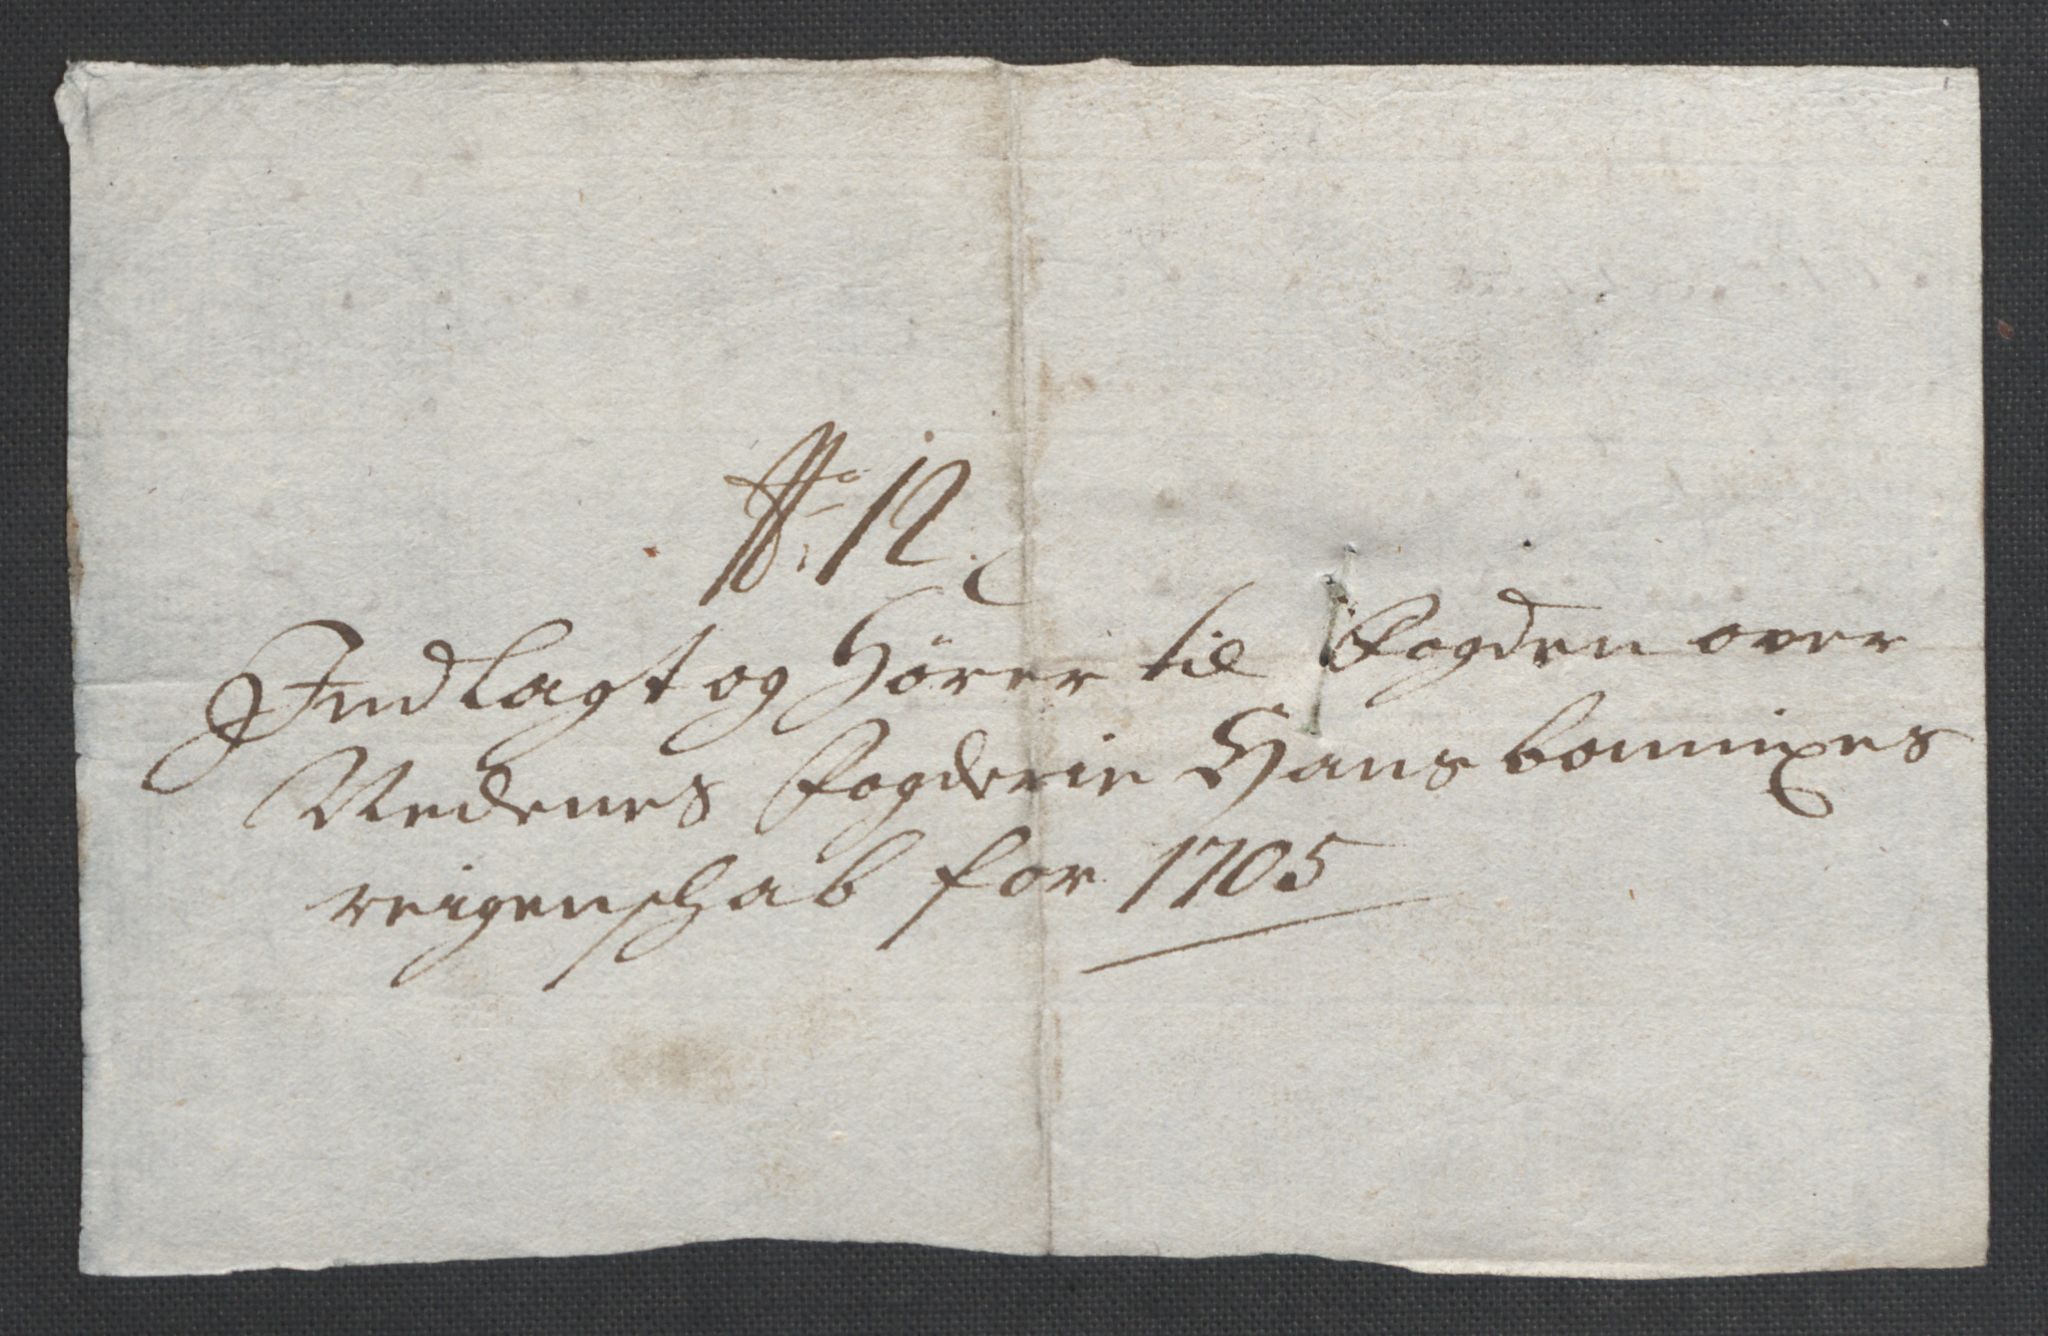 No: 12.
Indlagt og Hörer til Fogden over
Nedenes Fogderie Hans bonnixes
reigenschab for 1705